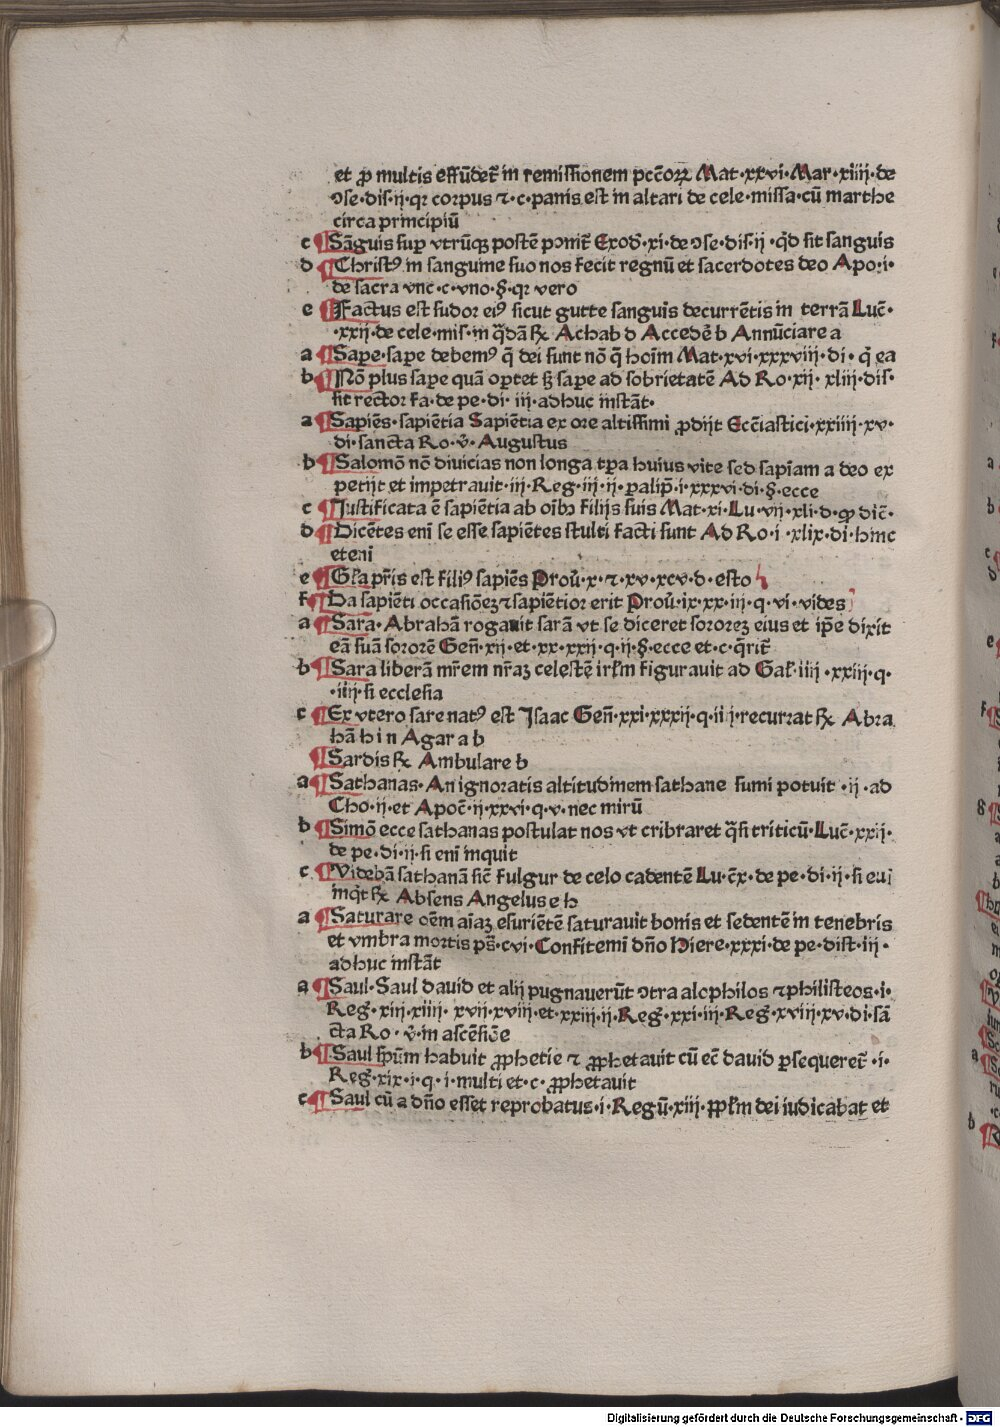 et ꝓ multis effūdet̄ in remissionem pcc̄oꝝ Mat·xxvi·Mar·xiiii·de
ɔse·dis·ii·qꝛ corpus ⁊·c·panis est in altari de cele·missa·cū marthe
circa principiū
c ¶Sāguis sup vtrūqꝫ postē pɔnit̄ Exod̄·xi·de ɔse·dis·ii·qd̄ sit sanguis
d ¶Christꝰ in sanguine suo nos fecit regnū et sacerdotes deo Apo·i·
de sacra vnc·c·vno·§·qꝛ vero
e ¶Factus est sudor eiꝰ sicut gutte sanguis decurrētis in terrā Luc̄·
·xxij·de cele·mis·in q̄dā ℞ Achab d Accedē b Annūciare a
a ¶Sape·sape debemꝰ q̄ dei sunt nō q̄ hoīm Mat·xvi·xxxviii·di·q̄ ea
b ¶Nō plus sape quā oꝑtet sꝫ sape ad sobrietatē Ad Ro·xii·xliii·dis·
sit rector fa·de pe·di·iii·adhuc instāt·
a ¶Sapiēs·sapiētia Sapiētia ex ore altissimi ꝓdijt Ecc̄iastici·xxiiii·xv·
di·sancta Ro·v̄·Augustus
b ¶Salomō nō diuicias non longa tꝑa huius vite sed sapiam a deo ex
petijt et impetrauit·iii·Reg·iii·ii·ꝑalip̄·i·xxxvi·di·§·ecce
c ¶Justificata ē sapiētia ab oībꝫ filijs suis Mat·xi·Lu·vii·xli·d·ꝙ dic̄·
d ¶Dicētes eni se esse sapiētes stulti facti sunt Ad Ro·i·xlix·di·hinc
eteni
e ¶Gl̄a pr̄is est filiꝰ sapiēs Prou̇·x·⁊·xv·xcv·d·esto
f ¶Da sapiēti occasiōeꝫ ⁊ sapiētior erit Prou̇·ix·xx·iii·q·vi·vides
a ¶Sara·Abrahā rogauit sarā vt se diceret sororeꝫ eius et ip̄e dixit
eā suā sororē Gen̄·xii·et·xx·xxii·q·ii·§·ecce et·c·q̄rit̄
b ¶Sara liberā mr̄em nr̄aꝫ celestē irl̄m figurauit ad Gal̄·iiii·xxiii·q·
·iiii·si ecclesia
c ¶Ex vtero sare natꝰ est Isaac Gen̄·xxi·xxxii·q·iiii·recurrat ℞ Abra
hā h i n Agar a b
¶Sardis ℞ Ambulare b
a ¶Sathanas·An ignoratis altitudinem sathane sumi potuit·ii·ad
Cho·ii·et Apoc̄·ii·xxvi·q·v·nec mirū
b ¶Simō ecce sathanas postulat nos vt cribraret q̄si triticū·Luc̄·xxii·
de pe·di·ii·si eni inquit
c ¶Videbā sathanā sic̄ fulgur de celo cadentē Lu·c̄x·de pe·di·ii·si eui
inqt ℞ Absens Angelus e h
a ¶Saturare oēm aīaꝫ esuriētē saturauit bonis et sedentē in tenebris
et vmbra mortis ps̄·cvi·Confitemi dn̄o Hiere·xxxi·de pe·dist·iii·
adhuc instāt
a ¶Saul·Saul dauid et alij pugnauerūt ɔtra alophilos ⁊philisteos·i·
Reḡ·xiij·xiiii·xvii·xviii·et·xxiii·ii·Reḡ·xxi·iii·Reḡ·xviii·xv·di·sā
cta Ro·v̄·in ascēsiōe
b ¶Saul sp̄um habuit ꝓphetie ⁊ ꝓphetauit cū ec̄ dauid ꝑsequeret̄·i·
Reḡ·xix·i·q·i·multi et·c·ꝓphetauit
c ¶Saul cū a dn̄o esset reprobatus·i·Regū·xiii·ppl̄m dei iudicabat et
Digitalisierung gefördert durch die Deutsche Forschungsgemeinschaft - DFG